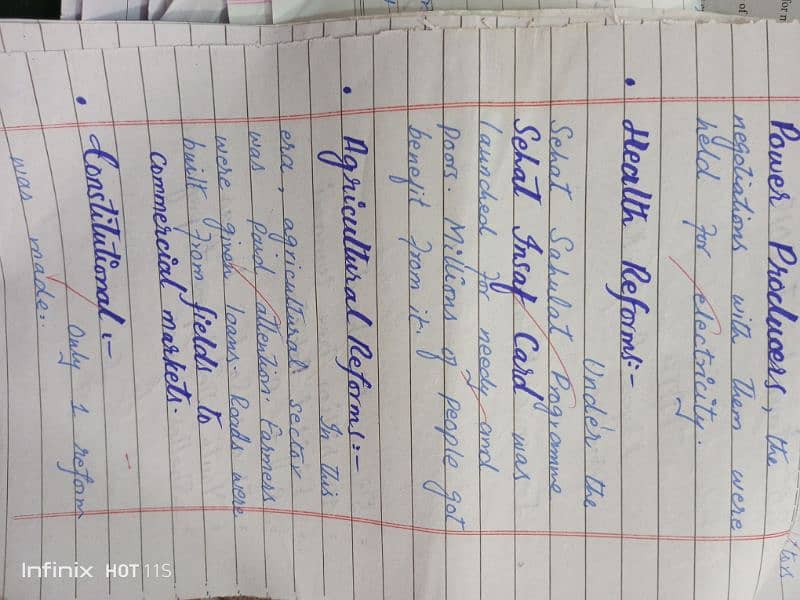 Power Producers, the
negotiations with them were
held for electricity.
• Health Reforms:-
Under the
Sehat Sahulat Programme
Sehat Insaf Card was
launched for needy and
poor. Millions of people got
benefit from it.
• Agricultural Reforms:-
In this
era, agricultural sector
was paid attention. Farmers
were given loans. Roads were
built from fields to
commercial markets.
• Constitutional:-
Only 1 reform
was made:
Infinix HOT 11S